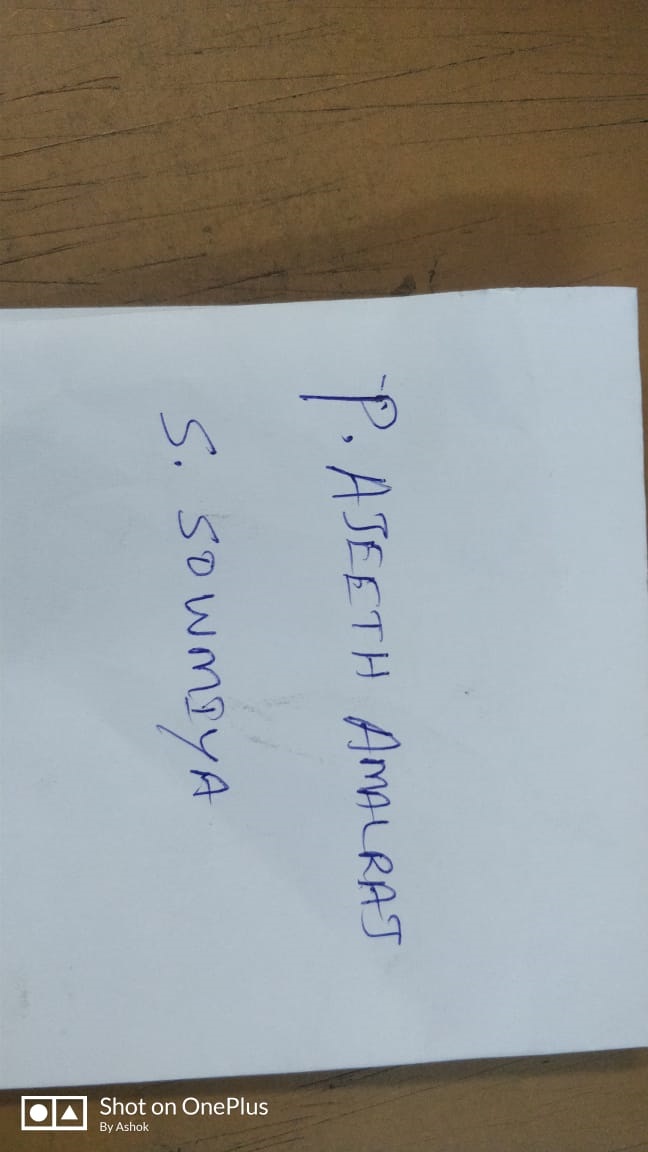 P. AJEETH AMALRAJ
S. SOWMIYA
Shot on OnePlus
By Ashok